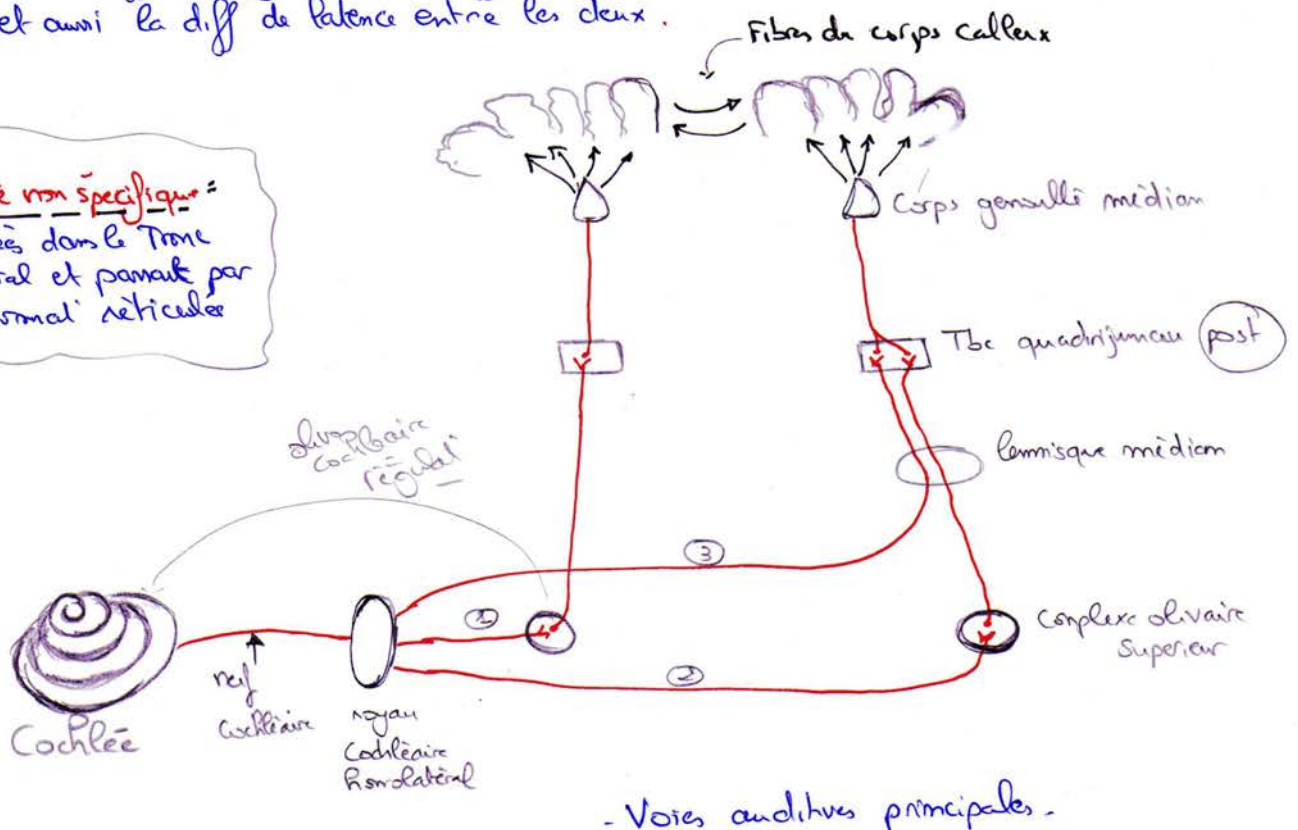 et aussi la diff de latence entre les deux.
Fibres du corps calleux
é non spécifique =
dans le Tronc
ral et passant par
ormat° réticulée
Corps genouillé médian
Tbc quadrijumeau post
lemnisque médian
olivo
cochléaire
régulat°
3
1
2
Complexe olivaire
Superieur
nerf
Cochléaire
noyau
Cochléaire
homolatéral
Cochlée
- Voies auditives principales -